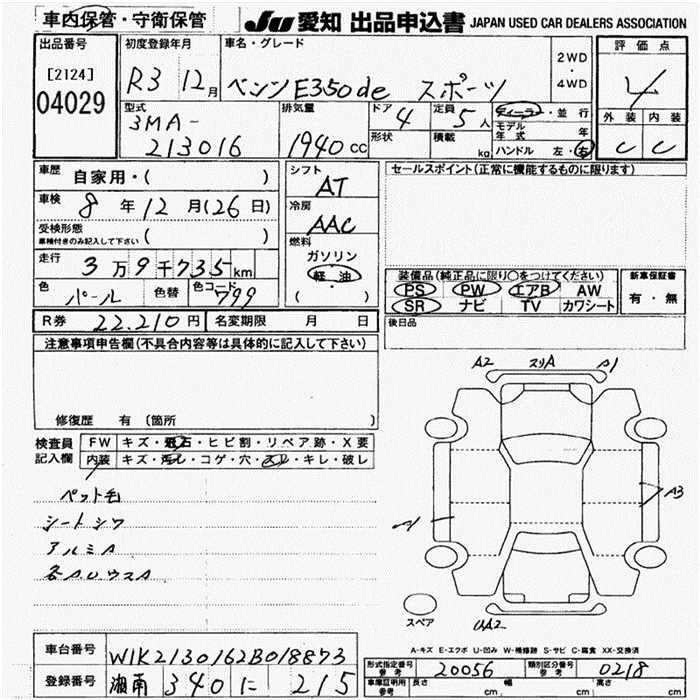 車内保管・守衛保管
JU 愛知 出品申込書 JAPAN USED CAR DEALERS ASSOCIATION
出品番号
[2124]
04029
初度登録年月
R3 12月
車名・グレード
ベンツ E350de スポーツ
2WD
・
4WD
評価点
4
外装 内装
C C
型式
3MA-
213016
排気量
1940 CC
ドア 4
形状
定員 5 人
積載 kg
ディーラー・並行
モデル年式 年
ハンドル 左・右
車歴
自家用・( )
車検
8年12月(26日)
受検形態
車検付きのみ記入して下さい ( )
走行
3万9千735km
色 パール 色替 色コード 799
シフト
AT
冷房
AAC
燃料
ガソリン
軽油
( )
セールスポイント(正常に機能するものに限ります)
装備品(純正品に限り○をつけてください)
PS PW エアB AW
SR ナビ TV カワシート
新車保証書
有・無
R券 22.210円 名変期限 月 日
後日品
注意事項申告欄(不具合内容等は具体的に記入して下さい)
修復歴 有 (箇所 )
検査員
記入欄
FW キズ・飛石・ヒビ割・リペア跡・X要
内装 キズ・汚レ・コゲ・穴・スレ・キレ・破レ
ペット毛
シートシワ
アルミA
各AUウスA
A2 スリA A1
A1
A3
UA2
スペア
A-キズ E-エクボ U-凹み W-補修跡 S-サビ C-腐食 XX-交換済
車台番号 W1K2130162B018873
登録番号 湘南 340 に 215
形式指定番号 参考 20056 類別区分番号 参考 0218
車庫証明用 参考 長さ cm 幅 cm 高さ cm